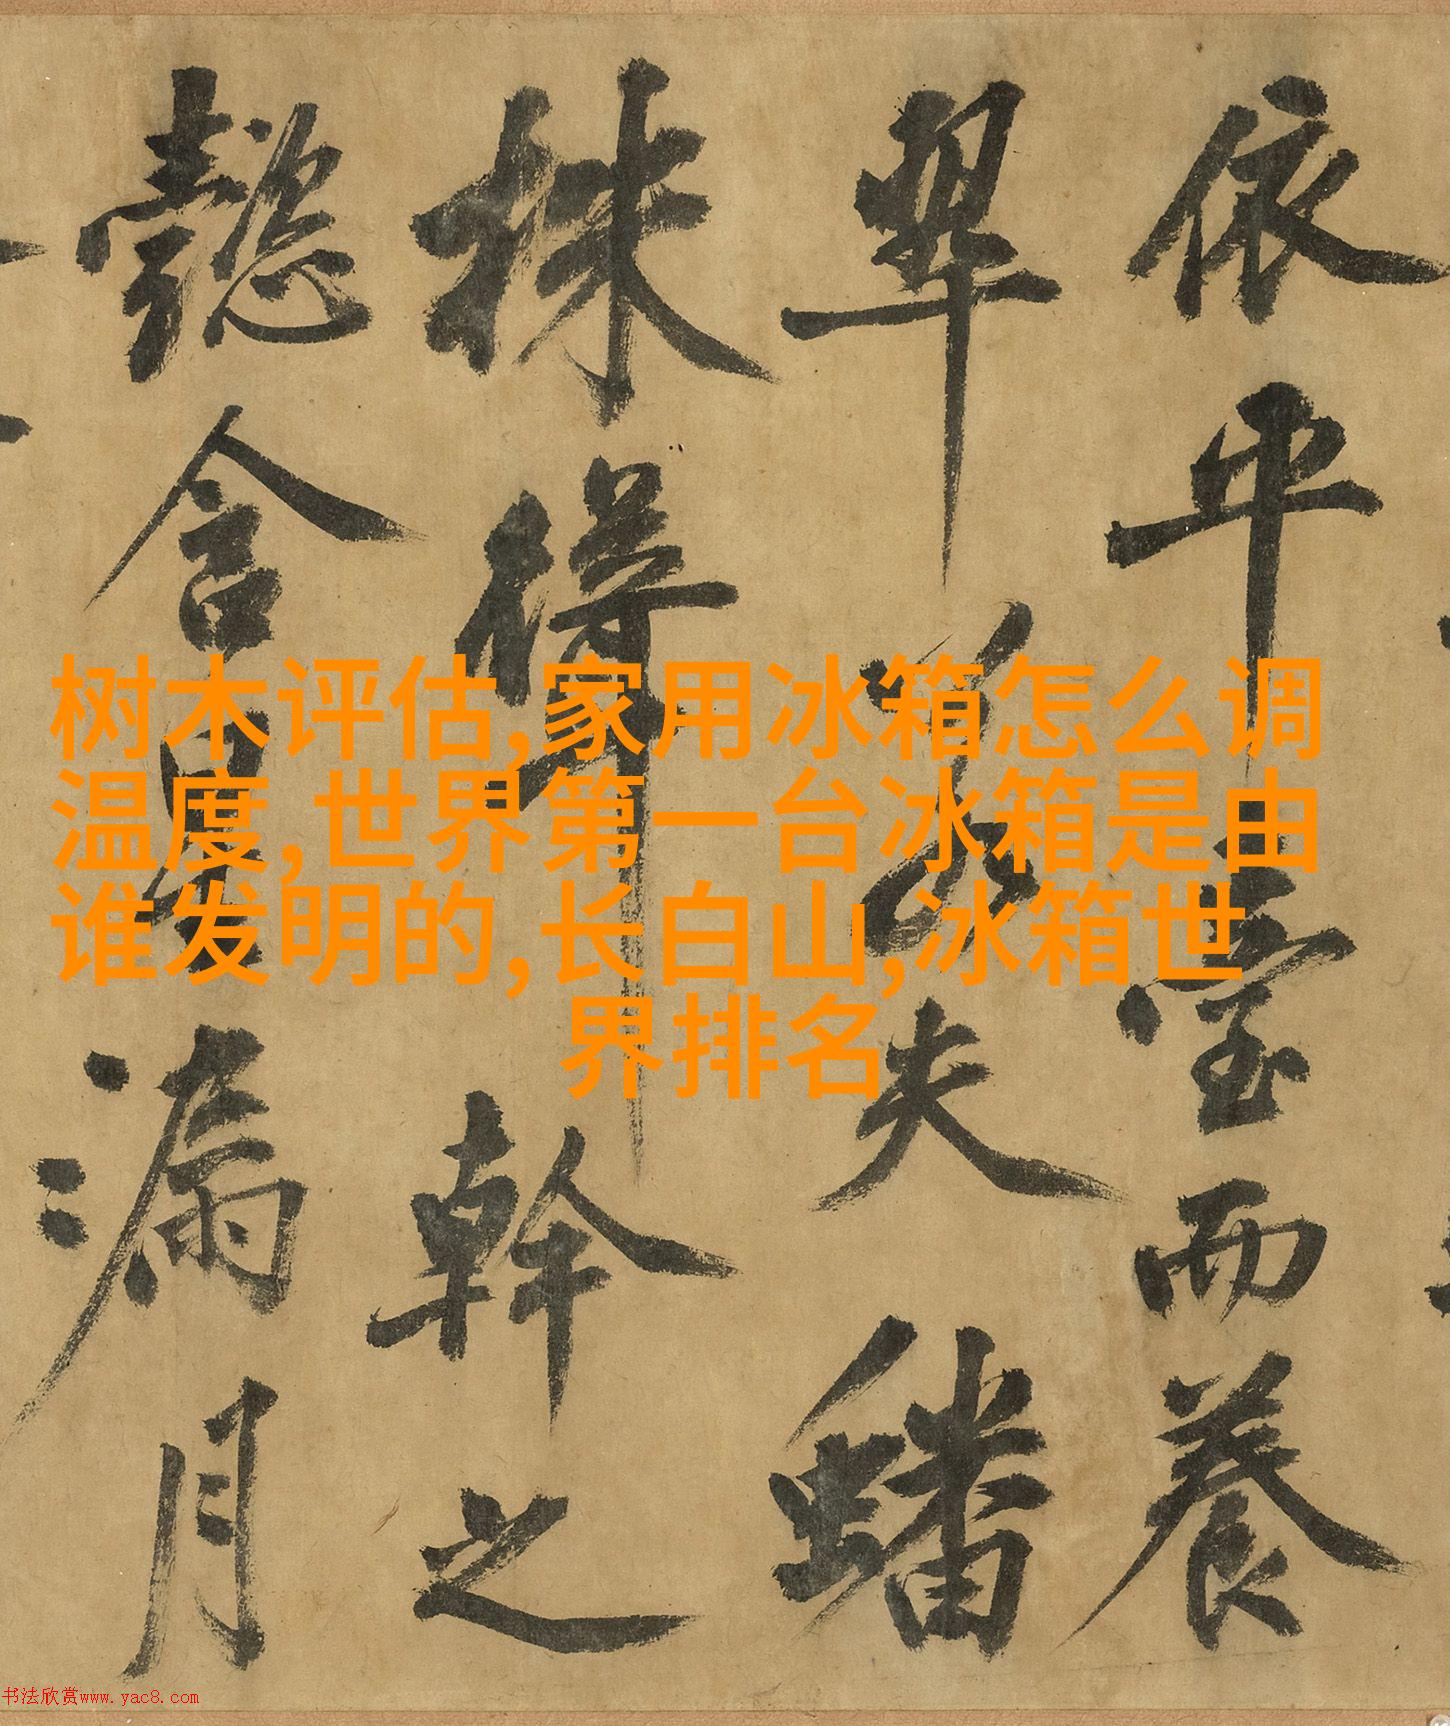 依平臺而養
翠若夫蟠
株得幹之
懿含星漏月
树木评估,家用冰箱怎么调
温度,世界第一台冰箱是由
谁发明的,长白山,冰箱世
界排名
书法欣赏www.yac8.com